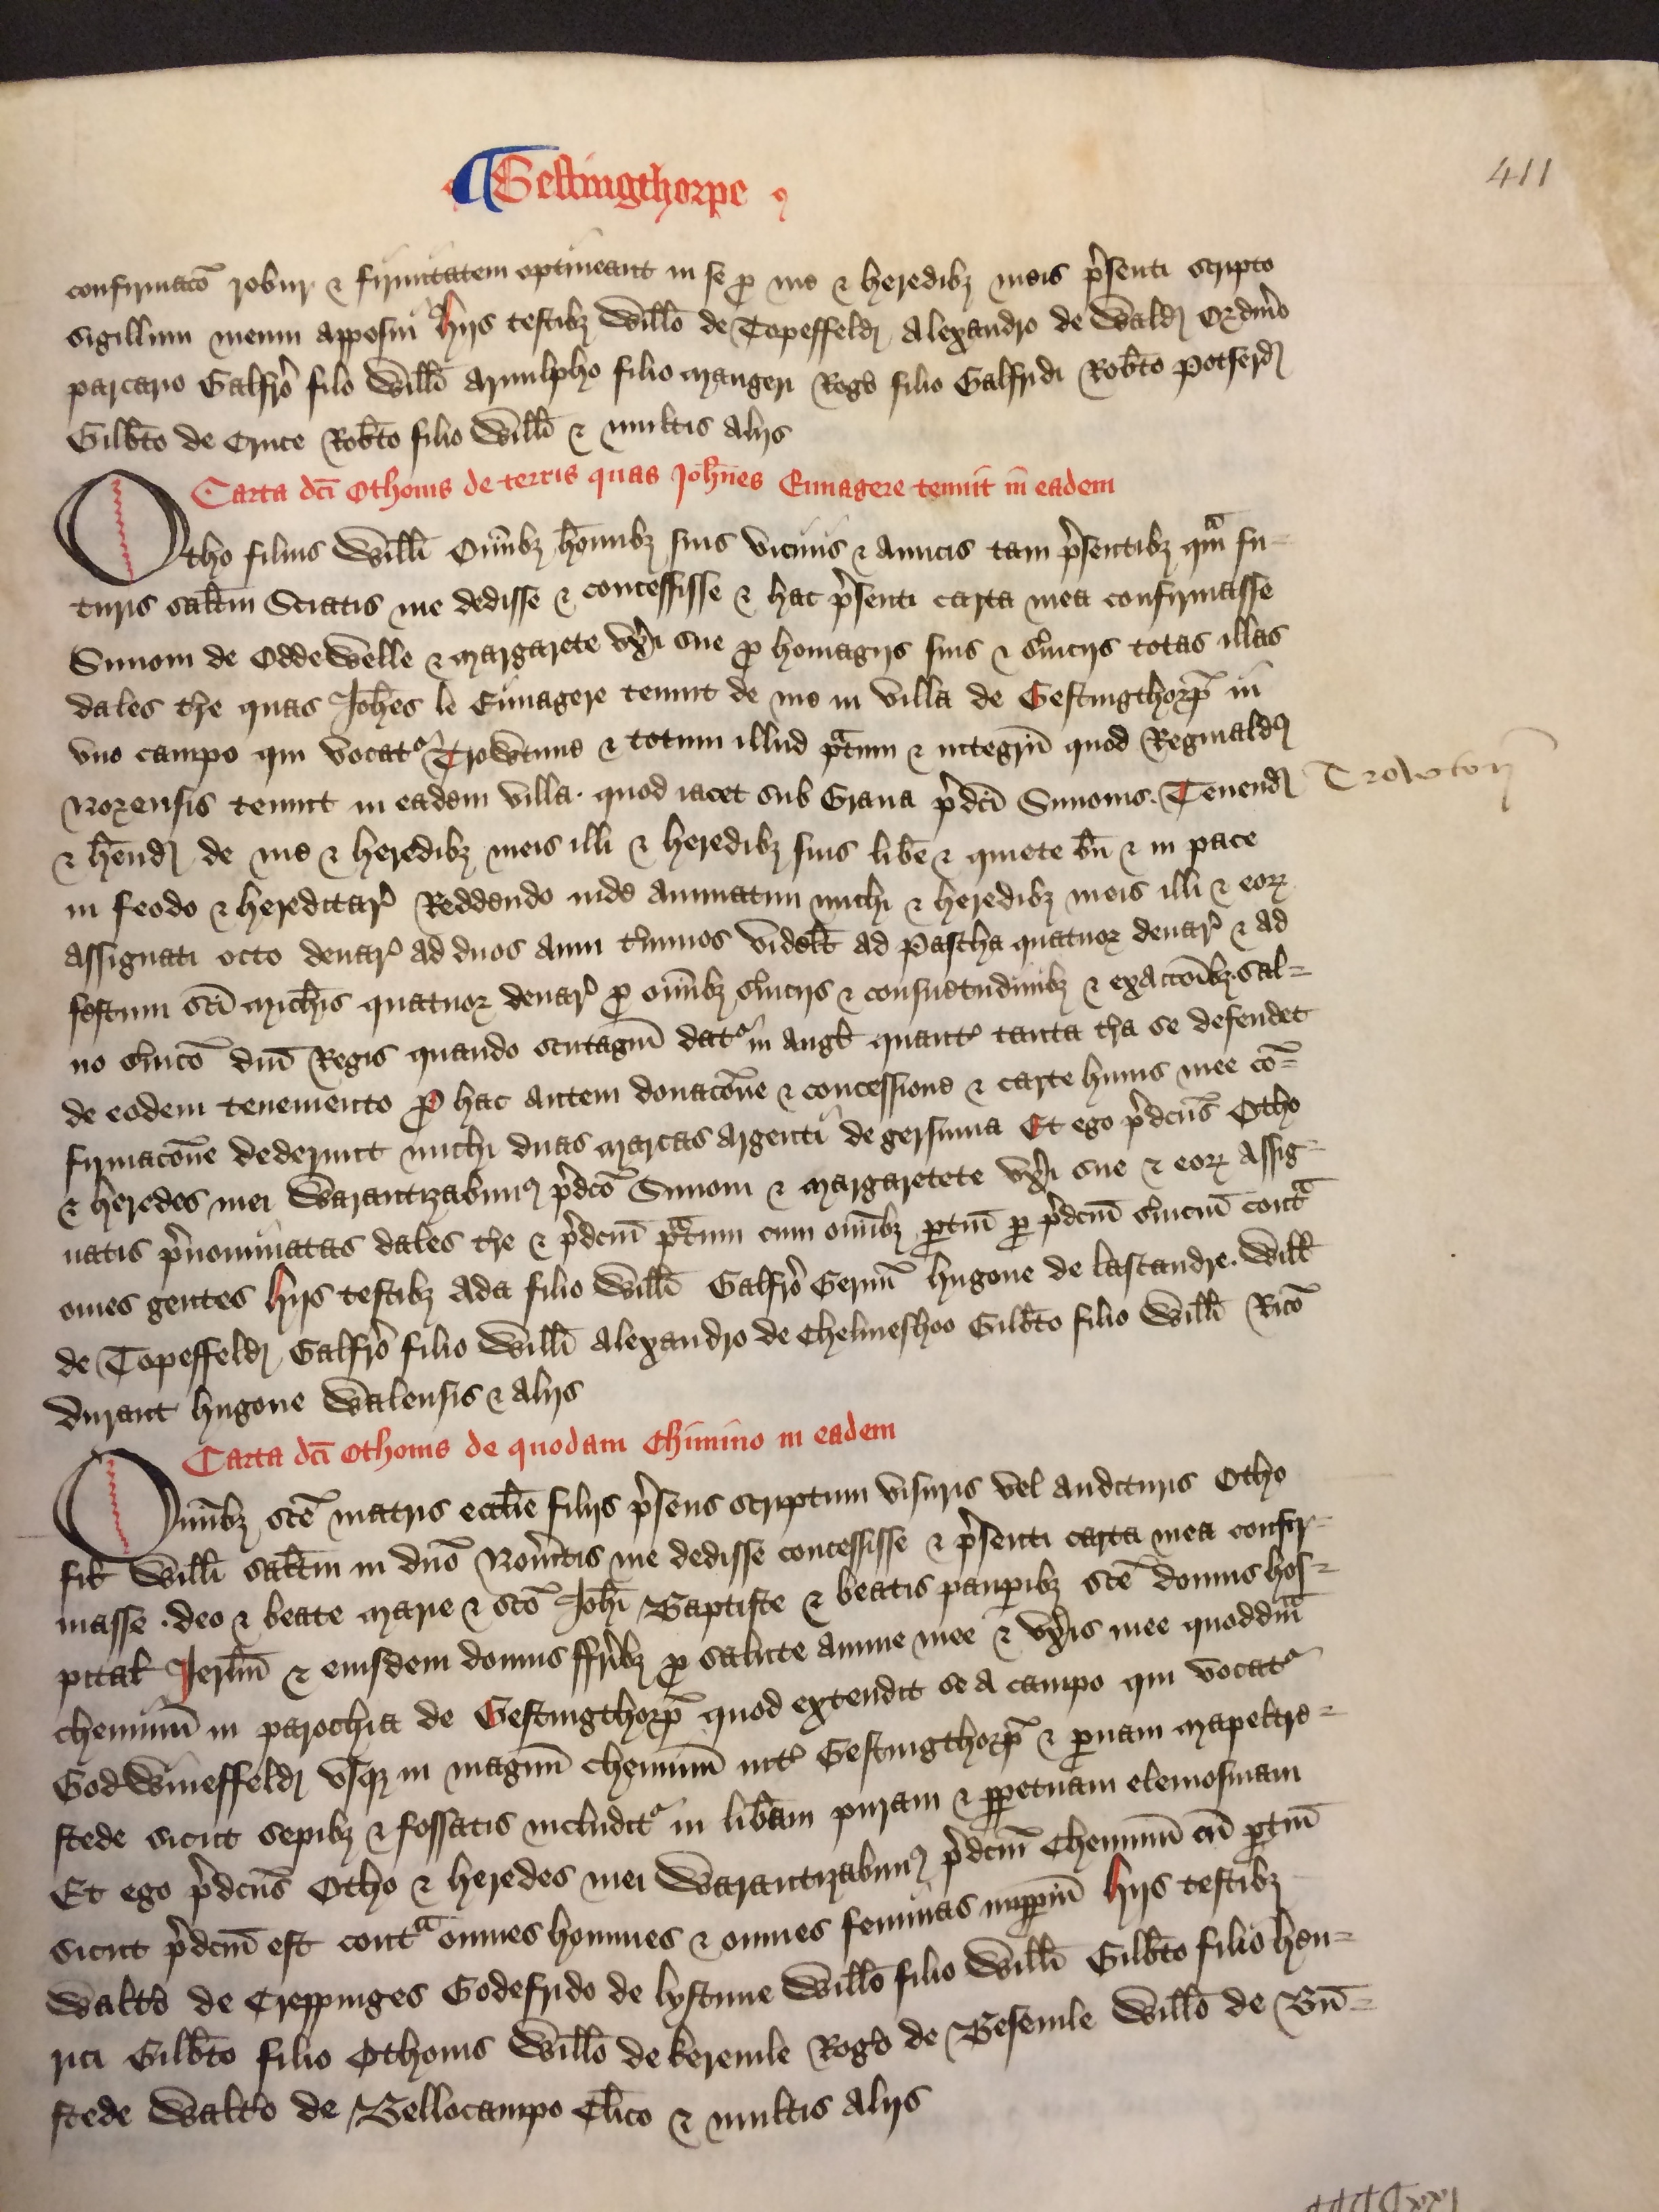 411
¶ Gestingthorpe
confirmacō robur & firmitatem optineant in se ꝓ me & heredibꝫ meis p̄senti scripto
sigillum meum apposui hijs testibꝫ Willo de Topeffeld Alexandro de Wald Ordm̄o
parcario Galfrō filo Willi Arnulpho filio Mangeri Rogo filio Galfridi Robto Potferd
Gilbto de Cruce Robto filio Willi & multis alijs
Carta dc̄i Othonis de terris quas Joh̄nes Eimagere tenuit in eadem
Otho filius Willi Om̄ibꝫ ho̅mibꝫ suis vicinis & amicis tam p̄sentibꝫ qᵃm fu-
turis salt̄m Sciatis me dedisse & concessisse & hac p̄senti carta mea confirmasse
Simoni de Oddewelle & Margarete vx̄i sue ꝓ homagijs suis & s̄uicijs totas illas
dales tr̄e quas Joh̄es le Eimagere tenuit de me in villa de Gestingthorp̄ in
vno campo qui vocatᵘ Trowtune & totum illud pᵃtum & integrū quod Reginaldꝰ
Norensis tenuit in eadem villa. quod iacet sub Graua p̄dc̄i Simonis. Tenend
Trowton̄
& h̄end de me & heredibꝫ meis illi & heredibꝫ suis libe & quiete bn̄ & in pace
in feodo & hereditar̄ Reddendo inde annuatim michi & heredibꝫ meis illi & eoꝝ
assignati octo denar̄ ad duos anni t̄minos videlt ad Pascha quatuor denar̄ & ad
festum sc̄i Mich̄is quatuor denar̄ ꝓ om̄ibꝫ s̄uicijs & consuetudinibꝫ & exacc̄oibꝫ. Sal-
uo s̄uicō dn̄i Regis quando scutagiū datᵘ in Angl quantᵘ tanta tr̄a se defendet
de eodem tenemento ꝓ hac autem donacōne & concessione & carte huius mee cō-
firmacōne dederunt michi duas marcas argenti de gersuma Et ego p̄dcūs Otho
& heredes mei Warantizabimꝰ p̄dcō Simoni & Margaretete vx̄i sue & eoꝝ assig-
natis p̄nominatas dales tr̄e & p̄dcm̄ pᵃtum cum om̄ibꝫ ꝑtin̄ ꝑ p̄dcm̄ s̄uiciū contᵃ
om̄es gentes hijs testibꝫ Ada filio Willi Galfrō Germ̄ Hugone de Lastandre. Willo
de Topeffeld Galfrō filio Willi Alexandro de Chelmeshoo Gilbto filio Willi Ricō
Durant Hugone Walensis & alijs
Carta dc̄i Othonis de quodam Chimino in eadem
Om̄ibꝫ scē matris eccl̄ie filijs p̄sens scriptum visuris vel audituris Otho
fil Willi salt̄m in dn̄o Nou̅itis me dedisse concessisse & p̄senti carta mea confir-
masse. deo & beate Marie & scō Joh̄i Baptiste & beatis pauꝑibꝫ scē domus hos-
pital Jerlm̄ & eiusdem domus ffr̄ibꝫ ꝓ salute anime mee & vx̄is mee quoddm̄
cheminū in parochia de Gestingthorp̄ quod extendit se a campo qui vocatᵘ
Godwineffeld vsqꝫ in magnū cheminū int̄ Gestingthorp̄ & ꝑuam Mapeltre-
stede sicut sepibꝫ & fossatis includitᵘ in lib̄am puram & ꝑpetuam elemosinam
Et ego p̄dcūs Otho & heredes mei Warantizabimꝰ p̄dcm̄ Cheminū cū ꝑtin̄
sicut p̄dcm̄ est contᵃ omnes homines & omnes feminas inꝑpm̄ hijs testibꝫ
Walto de Creppinges Godefrido de Lystune Willo filio Willi Gilbto filio Hen-
rici Gilbto filio Othonis Willo de Kereuile Rogo de Beseuile Willo de Bū-
stede Walto de Bellocampo Clīco & multis alijs